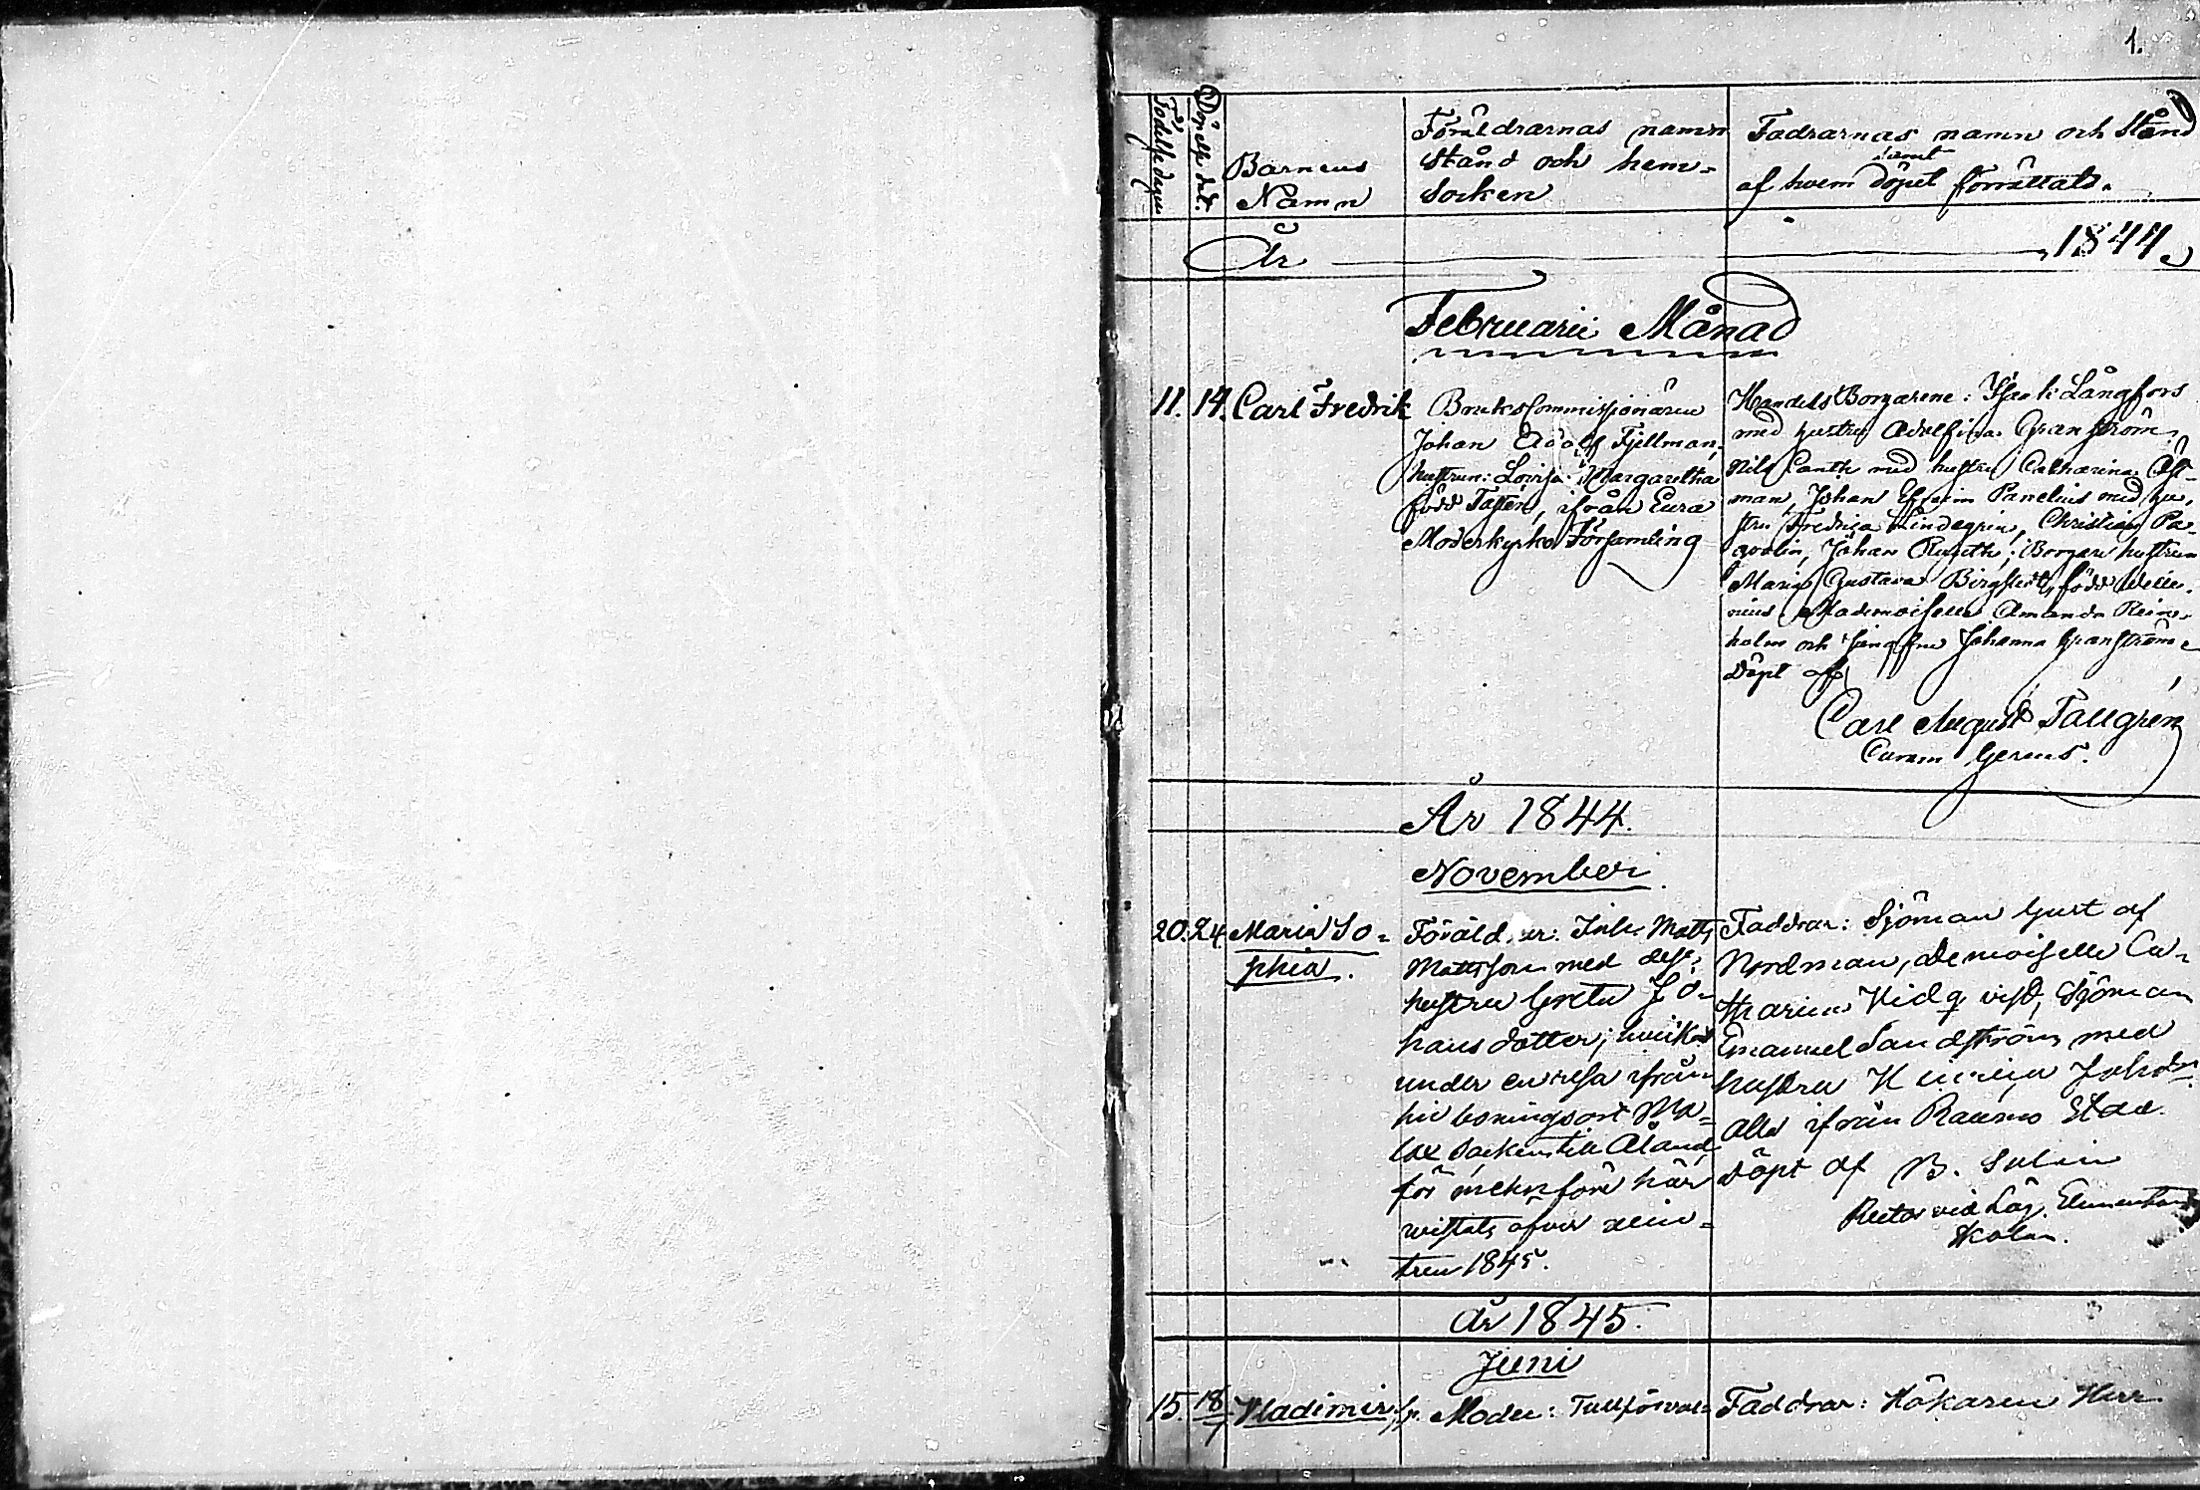 1.
Födelse dagen
Döpelse dat.
Barnens
Namn
Föräldrarnas namn
Stånd och hem-
Socken
Fadrarnas namn och Stånd
samt
af hvem döpet förrättats.
År 1844
Februarii Månad
11. 14. Carl Fredrik
BruksCommissionären
Johan Adolf Fjellman,
hustrun: Lovisa Margaretha
född Tallen, ifrån Eura
Moderkyrko Församling
HandelsBorgarene: Isak Långfors
med hustru Adolfina Granström,
Nils Canth med hustru Catharina Öst-
man, Johan Efraim Panelius med hu-
stru Fredrica Lindegren, Christian Pa-
qvalin, Johan ; Borgare hustrun
Maria Gustava född
Mademoiselle Amanda Rein-
holm och Jungfru Johanna Granström
döpt af
Carl August Tallgren
Gerens.
År 1844.
November
20. 24 Maria So-
phia.
Föräldrar: Inh. Matts
Mattsson med dess
hustru Greta Jo-
hansdotter; hvilka
under en resa ifrån
boningsort Ma-
lax socken till Åland
för här
vistats öfver vin-
tren 1845.
Faddrar: Sjöman Gust af
Nordman, Demoiselle Ca-
tharina qvist, Sjöman
Emanuel Sandström med
hustru
alla ifrån Raumo Stad.
döpt af B. Salin
Rector vid Låg. Elementar
Skolan.
År 1845.
Juni
15. 18/7 Vladimir
Moder: Tullförval-
Faddrar: Hökaren Herr